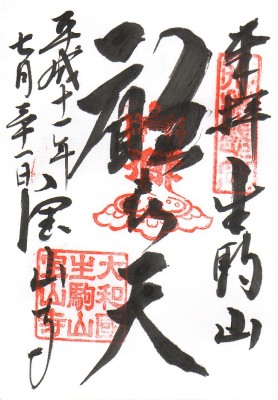 奉拝 生駒山
歓喜天
平成十一年
七月三十一日
宝山寺
大和國
生駒山
寳山寺